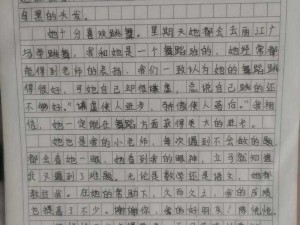 乌黑的头发。
她十分喜欢跳舞，星期天她都会去丽江广
与学跳舞，我和她是一个舞蹈班的，她经常都
能得到老师的表扬，我们一致认为她的舞蹈跳
得很好，可她自己却很谦虚，说自己跳的还
不够好。“谦虚使人进步，骄傲使人落后。”我相
信，她一定能在舞蹈方面获得更大的进步。
她也是我的小老师，每次遇到不会做的题
都会看她一眼，她看到我的眼神，立马就知道
我又遇到了难题。无论是数学还是语文，她都
教我。在她的帮助下，久而久之，我的成绩
也提高了不少。谢谢你，我的好朋友！